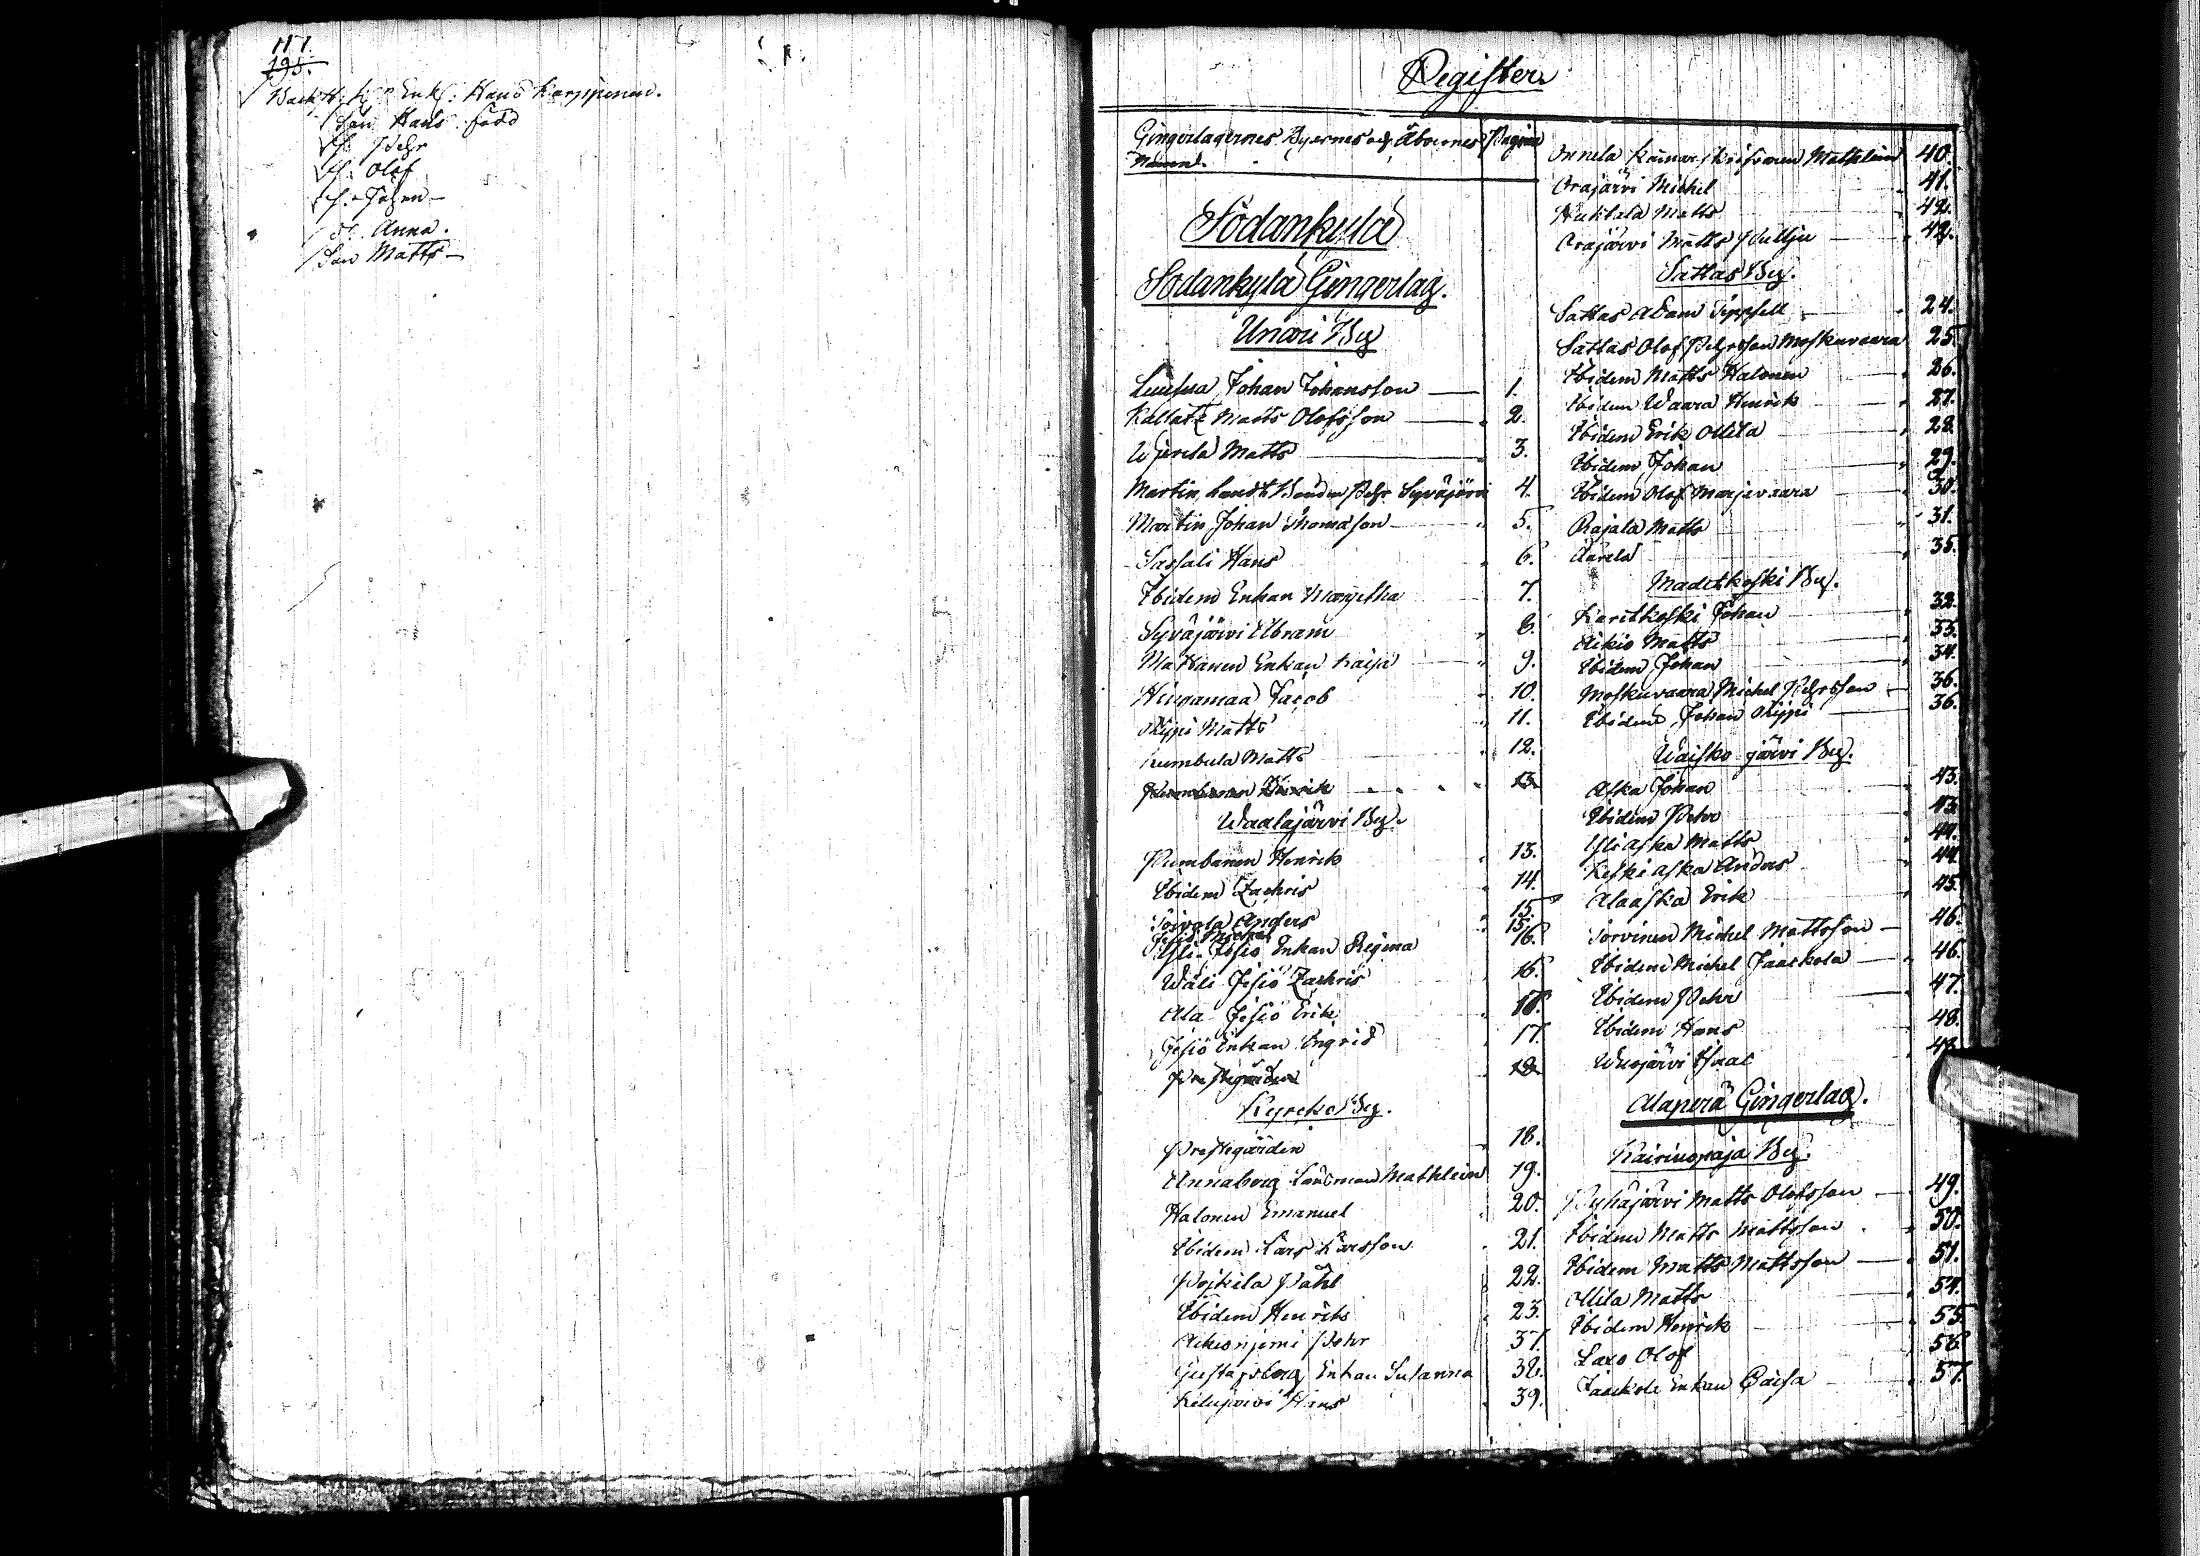 117.
195.
Enk: Hans Karppinen.
Son Hans född
S. Pehr
S. Olof
S. Johan —
D. Anna.
Son Matts —
Register
Gingerlagernes Byarnes och Åboernes Namn. Pagina
Sodankylä
Sodankylä Gingerlag.
Unari By
Luusua Johan Johansson — 1.
Kallatz Matts Olofsson — 2.
Ujerela Matts 3.
Martin Pehr Syväjärvi 4.
Martin Johan Thomasson — 5.
Sassali Hans 6.
Ibidem Enkan Margetha 7.
Syväjärvi Abram 8.
Mattanen Enkan Kaisa 9.
Hirgamaa Jacob 10.
Pyppi Matts 11.
Kumbula Matts 12.
Pumbanen Henrik 13.
Waalajärvi By.
Pumbanen Henrik 13.
Ibidem Zachris 14.
Toivola Anders 15.
Jesiö Michel 15.
Yli-Jesiö Enkan Regina 16.
Wäli Jesiö Zachris 16.
Ala Jesiö Erik 18.
Jesiö Enkan Ingrid 17.
Prestegården 18.
Kyrcko By.
Prestegården 18.
Annaborg Länsman Mathlein 19.
Halonen Emanuel 20.
Ibidem Lars Larsson 21.
Poikela Påhl 22.
Ibidem Henrik 23.
Aikioniemi Pehr 37.
Gustafsborg Enkan Susanna 38.
Kelujärvi Hans 39.
Onnela Mathlein 40.
Orajärvi Michel 41.
Huklala Matts 42.
Orajärvi Matts Pullju — 42.
Sattas By.
Sattas Adam Tippfelt 24.
Sattas Olof Pehrsson Moskuvaara 25.
Ibidem Matts Halonen 26.
Ibidem Waara Henrik 27.
Ibidem Erik Ollila 28.
Ibidem Johan 29.
Ibidem Olof Marjavaara 30.
Rajala Matts 31.
Äärelä 35.
Madetkoski By.
Karitkoski Johan 32.
Aikio Matts 33.
Ibidem Johan 34.
Moskuvaara Michel Pehrsson — 36.
Ibidem Johan Pyppi 36.
Waisko järvi By.
Aska Johan 43.
Ibidem Pehr 43.
Yli aska Matts 44.
Keski aska Anders 44.
Alaaska Erik 45.
Torvinen Michel Mattsson — 46.
Ibidem Michel Jaackola — 46.
Ibidem Pehr 47.
Ibidem Hans 48.
Wuojärvi Isaac 48.
Alaperä Gingerlag.
Kairinoraja By.
Pyhäjärvi Matts Olofsson — 49.
Ibidem Matts Mattsson 50.
Ibidem Matts Mattsson — 51.
Ollila Matts 54.
Ibidem Henrik 55.
Laxo Olof 56.
Jaackola Enkan Caisa 57.